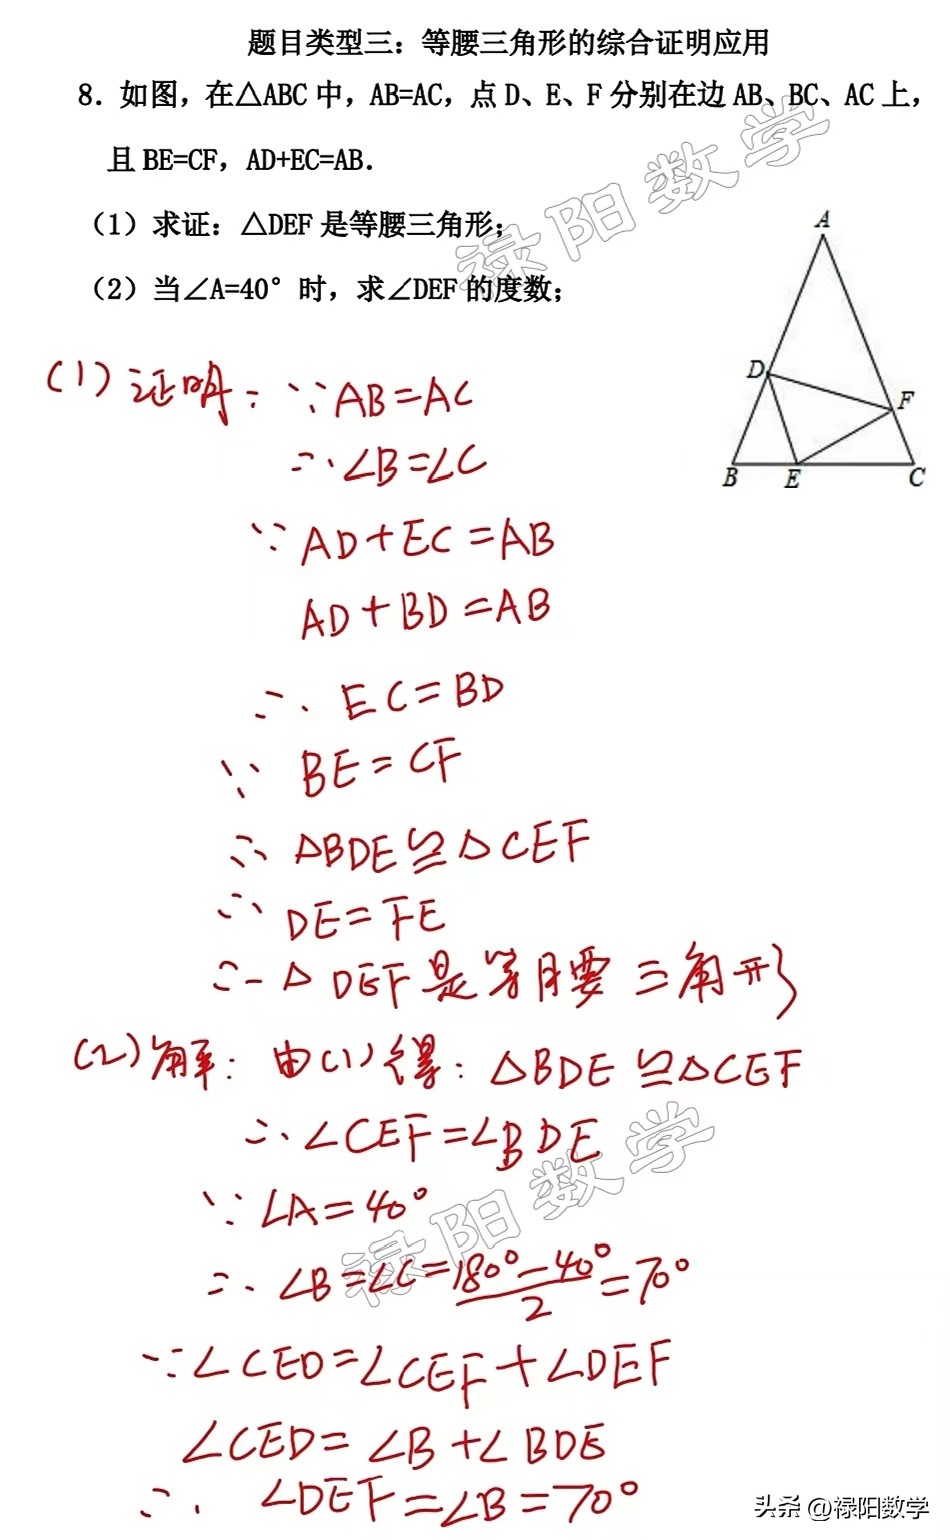 题目类型三：等腰三角形的综合证明应用
8．如图，在△ABC中，AB=AC，点D、E、F分别在边AB、BC、AC上，
且BE=CF，AD+EC=AB．
（1）求证：△DEF是等腰三角形；
（2）当∠A=40°时，求∠DEF的度数；
禄阳数学
A
D
F
B
E
C
(1) 证明：∵AB=AC
∴∠B=∠C
∵AD+EC=AB
AD+BD=AB
∴EC=BD
∵BE=CF
∴△BDE≌△CEF
∴DE=FE
∴△DEF是等腰三角形
(2)解：由(1)得：△BDE≌△CEF
∴∠CEF=∠BDE
禄阳数学
∵∠A=40°
∴∠B=∠C=180°-40°/2=70°
∵∠CED=∠CEF+∠DEF
∠CED=∠B+∠BDE
∴∠DEF=∠B=70°
头条 @禄阳数学